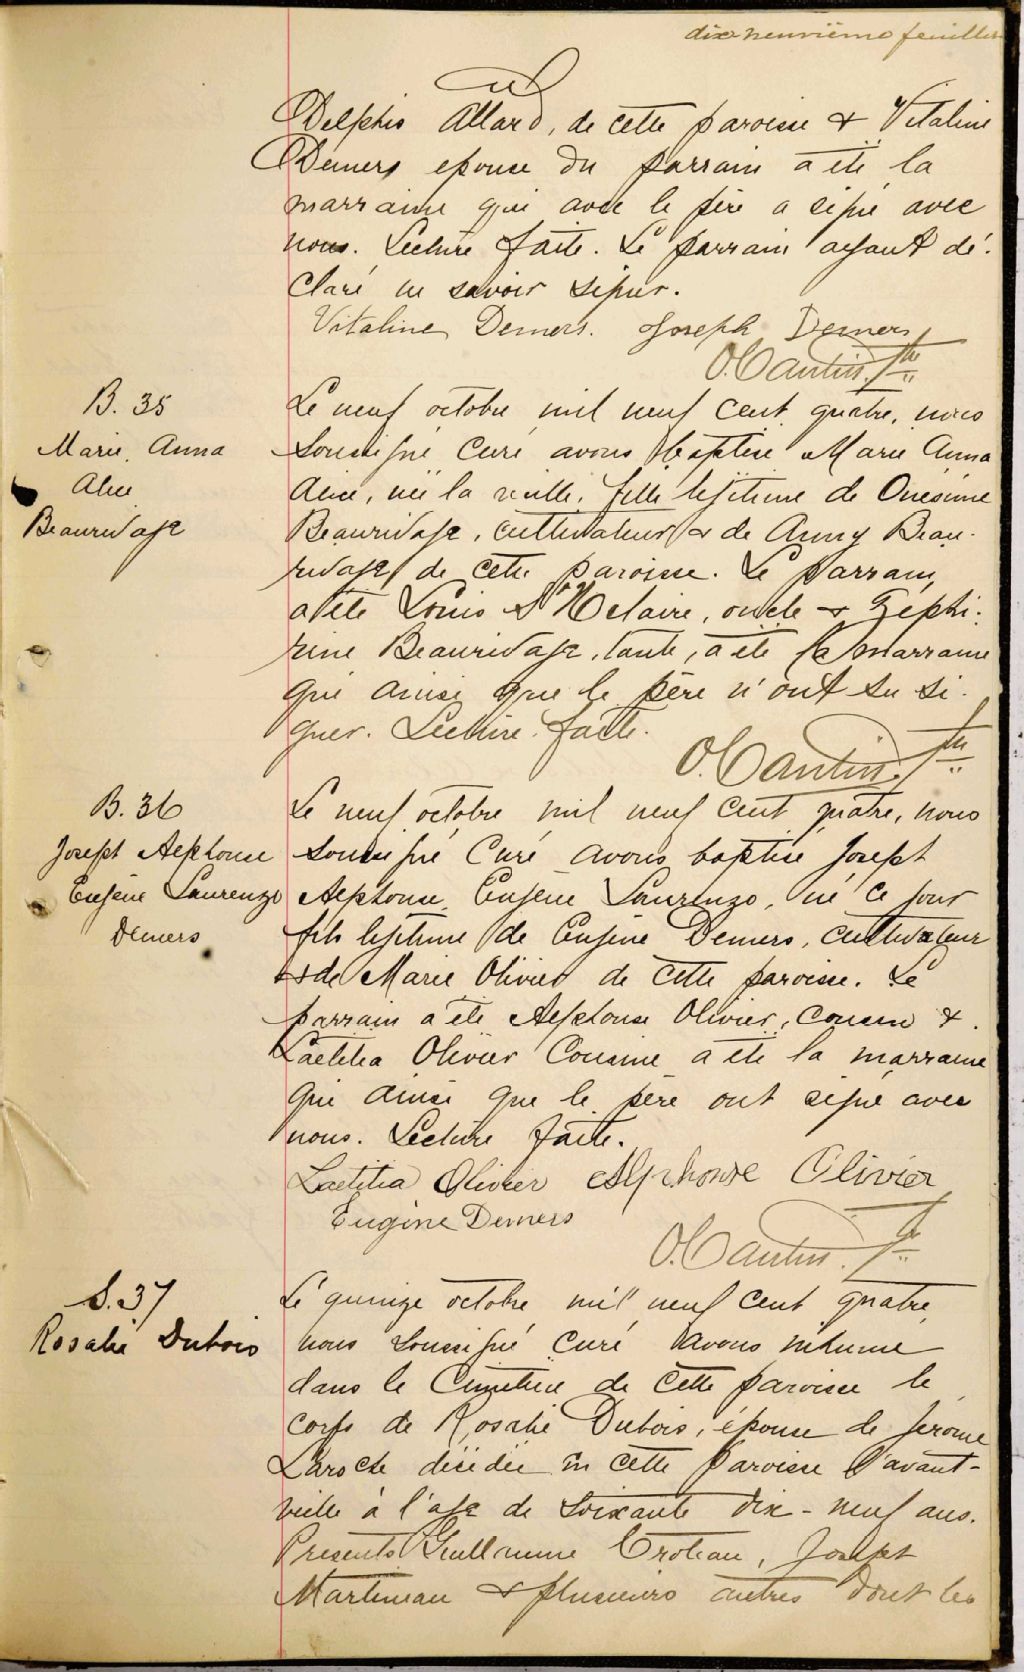 dix neuvième feuillet
Delphis Allard, de cette paroisse & Vitaline
Demers epouse du parrain a été la
marraine qui avec le père a signé avec
nous. Lecture faite. Le parrain ayant dé-
claré ne savoir signer.
Vitaline Demers. Joseph Demers
O. Cantin. Ptre
B. 35
Marie Anna
Alice
Beaurivage
Le neuf octobre mil neuf cent quatre, nous
soussigné curé avons baptisé Marie Anna
Alice, née la veille, fille légitime de Onésime
Beaurivage, cultivateur & de Anny Beau-
rivage de cette paroisse. Le parrain
a été Louis St Hilaire, oncle & Zéphi-
rine Beaurivage, tante, a été la marraine
qui ainsi que le père n'ont su si-
gner. Lecture faite.
O. Cantin. Ptre
B. 36
Joseph Alphonse
Eugène Laurenzo
Demers
Le neuf octobre mil neuf cent quatre, nous
soussigné Curé avons baptisé Joseph
Alphonse Eugène Laurenzo, né ce jour
fils légitime de Eugène Demers, cultivateur
& de Marie Olivier de cette paroisse. Le
parrain a été Alphonse Olivier, cousin &
Laetitia Olivier Cousine a été la marraine
qui ainsi que le père ont signé avec
nous. Lecture faite.
Laetitia Olivier Alphonse Olivier
Eugène Demers
O. Cantin. Ptre
S. 37
Rosalie Dubois
Le quinze octobre mil neuf cent quatre,
nous soussigné curé avons inhumé
dans le Cimetière de cette paroisse le
corps de Rosalie Dubois, épouse de Jerome
Laroche décédée en cette paroisse l'avant-
veille à l'age de soixante dix-neuf ans.
Presents Guillaume Croteau, Joseph
Martineau & plusieurs autres dont les